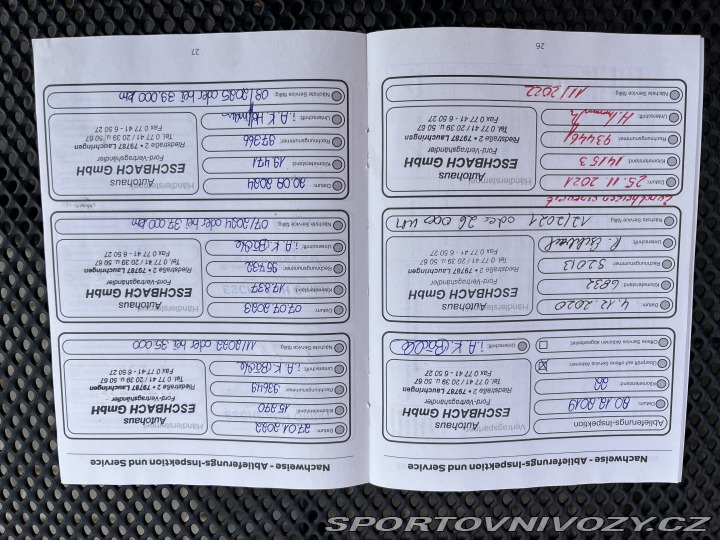 Nachweise - Ablieferungs-Inspektion und Service
Ablieferungs-Inspektion
Datum: 20.12.2019
Kilometerstand: 22
Überprüft auf offene Service Aktionen:
Offene Service Aktionen abgearbeitet:
Unterschrift: i.A. K. Bölle
Autohaus
ESCHBACH GmbH
Ford-Vertragshändler
Riedstraße 2 • 79787 Lauchringen
Tel. 0 77 41 / 20 39 u. 50 67
Fax 0 77 41 - 6 50 27
Datum: 4.12.2020
Kilometerstand: 6832
Rechnungsnummer: 32013
Unterschrift:
Nächste Service fällig: 12/2021 oder 26 000 km
Händlerstempel
Autohaus
ESCHBACH GmbH
Ford-Vertragshändler
Riedstraße 2 • 79787 Lauchringen
Tel. 0 77 41 / 20 39 u. 50 67
Fax 0 77 41 - 6 50 27
Zündkerzen erneuert
Datum: 25.11.2021
Kilometerstand: 14153
Rechnungsnummer: 934461
Unterschrift:
Nächste Service fällig: 11/2022
Händlerstempel
Autohaus
ESCHBACH GmbH
Ford-Vertragshändler
Riedstraße 2 • 79787 Lauchringen
Tel. 0 77 41 / 20 39 u. 50 67
Fax 0 77 41 - 6 50 27
26
Nachweise - Ablieferungs-Inspektion und Service
Datum:
Kilometerstand: 15.270
Rechnungsnummer: 33649
Unterschrift: i.A. K. Bölle
Nächste Service fällig: 11/2022 oder bei 35.000
Händlerstempel
Autohaus
ESCHBACH GmbH
Ford-Vertragshändler
Riedstraße 2 • 79787 Lauchringen
Tel. 0 77 41 / 20 39 u. 50 67
Fax 0 77 41 - 6 50 27
Datum: 07.07.2023
Kilometerstand: 17.837
Rechnungsnummer: 95432
Unterschrift: i.A. K. Bölle
Nächste Service fällig: 07/2024 oder bei 37.000 km
Händlerstempel
Autohaus
ESCHBACH GmbH
Ford-Vertragshändler
Riedstraße 2 • 79787 Lauchringen
Tel. 0 77 41 / 20 39 u. 50 67
Fax 0 77 41 - 6 50 27
Datum: 20.08.2024
Kilometerstand: 19.471
Rechnungsnummer: 97366
Unterschrift: i.A. K.
Nächste Service fällig: 08/2025 oder bei 39.000 km
Händlerstempel
Autohaus
ESCHBACH GmbH
Ford-Vertragshändler
Riedstraße 2 • 79787 Lauchringen
Tel. 0 77 41 / 20 39 u. 50 67
Fax 0 77 41 - 6 50 27
27
SPORTOVNIVOZY.CZ